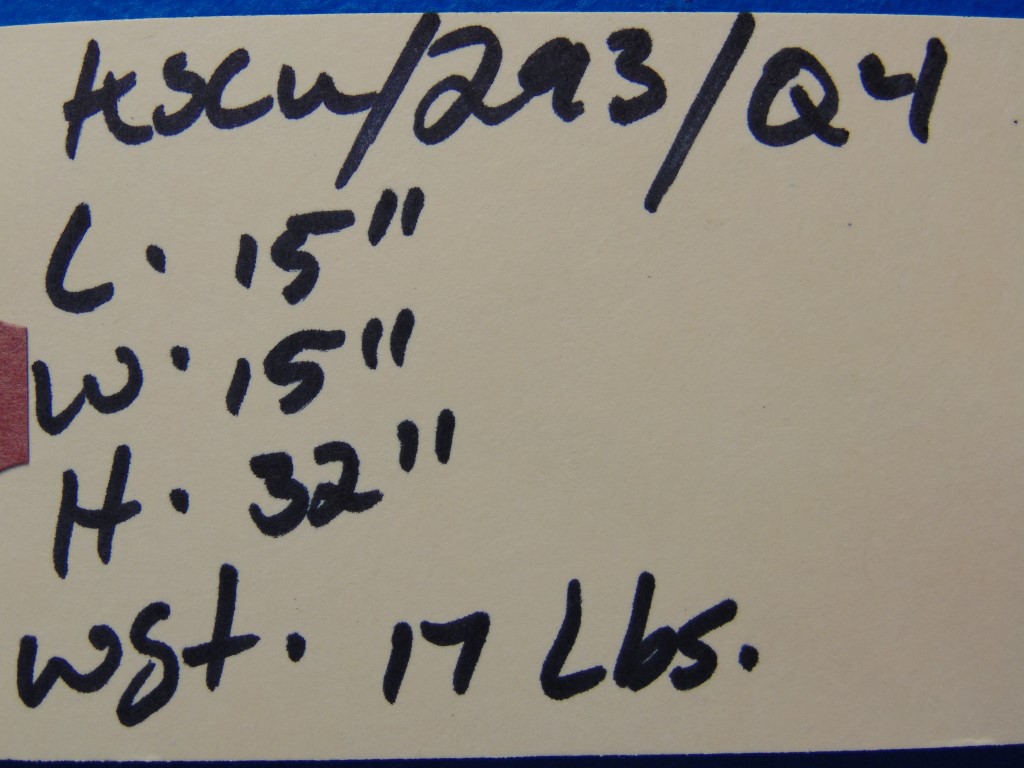 HSCW/293/Q4
L. 15"
W. 15"
H. 32"
wgt. 17 Lbs.